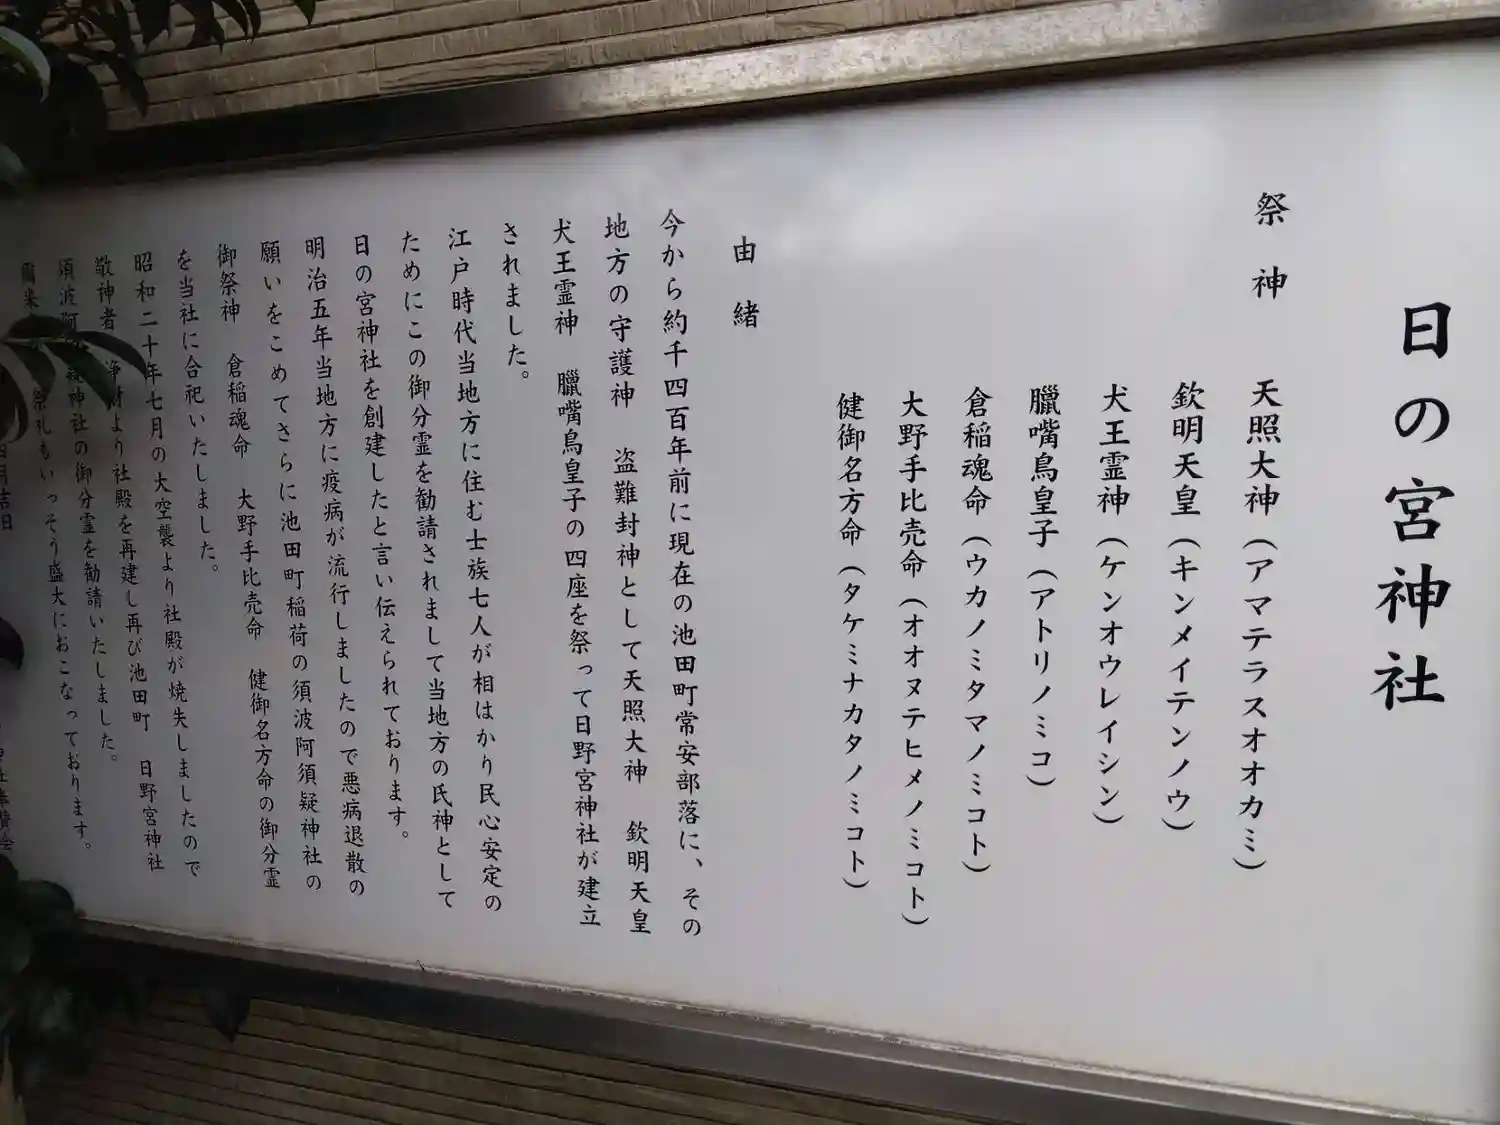 日の宮神社
祭神　天照大神（アマテラスオオカミ）
欽明天皇（キンメイテンノウ）
犬王霊神（ケンオウレイシン）
臘嘴鳥皇子（アトリノミコ）
倉稲魂命（ウカノミタマノミコト）
大野手比売命（オオヌテヒメノミコト）
健御名方命（タケミナカタノミコト）
由緒
今から約千四百年前に現在の池田町常安部落に、その
地方の守護神　盗難封神として天照大神　欽明天皇
犬王霊神　臘嘴鳥皇子の四座を祭って日野宮神社が建立
されました。
江戸時代当地方に住む士族七人が相はかり民心安定の
ためにこの御分霊を勧請されまして当地方の氏神として
日の宮神社を創建したと言い伝えられております。
明治五年当地方に疫病が流行しましたので悪病退散の
願いをこめてさらに池田町稲荷の須波阿須疑神社の
御祭神　倉稲魂命　大野手比売命　健御名方命の御分霊
を当社に合祀いたしました。
昭和二十年七月の大空襲より社殿が焼失しましたので
敬神者　浄財より社殿を再建し再び池田町　日野宮神社
須波阿　疑神社の御分霊を勧請いたしました。
爾来　祭礼もいっそう盛大におこなっております。
四月吉日　社奉賛会